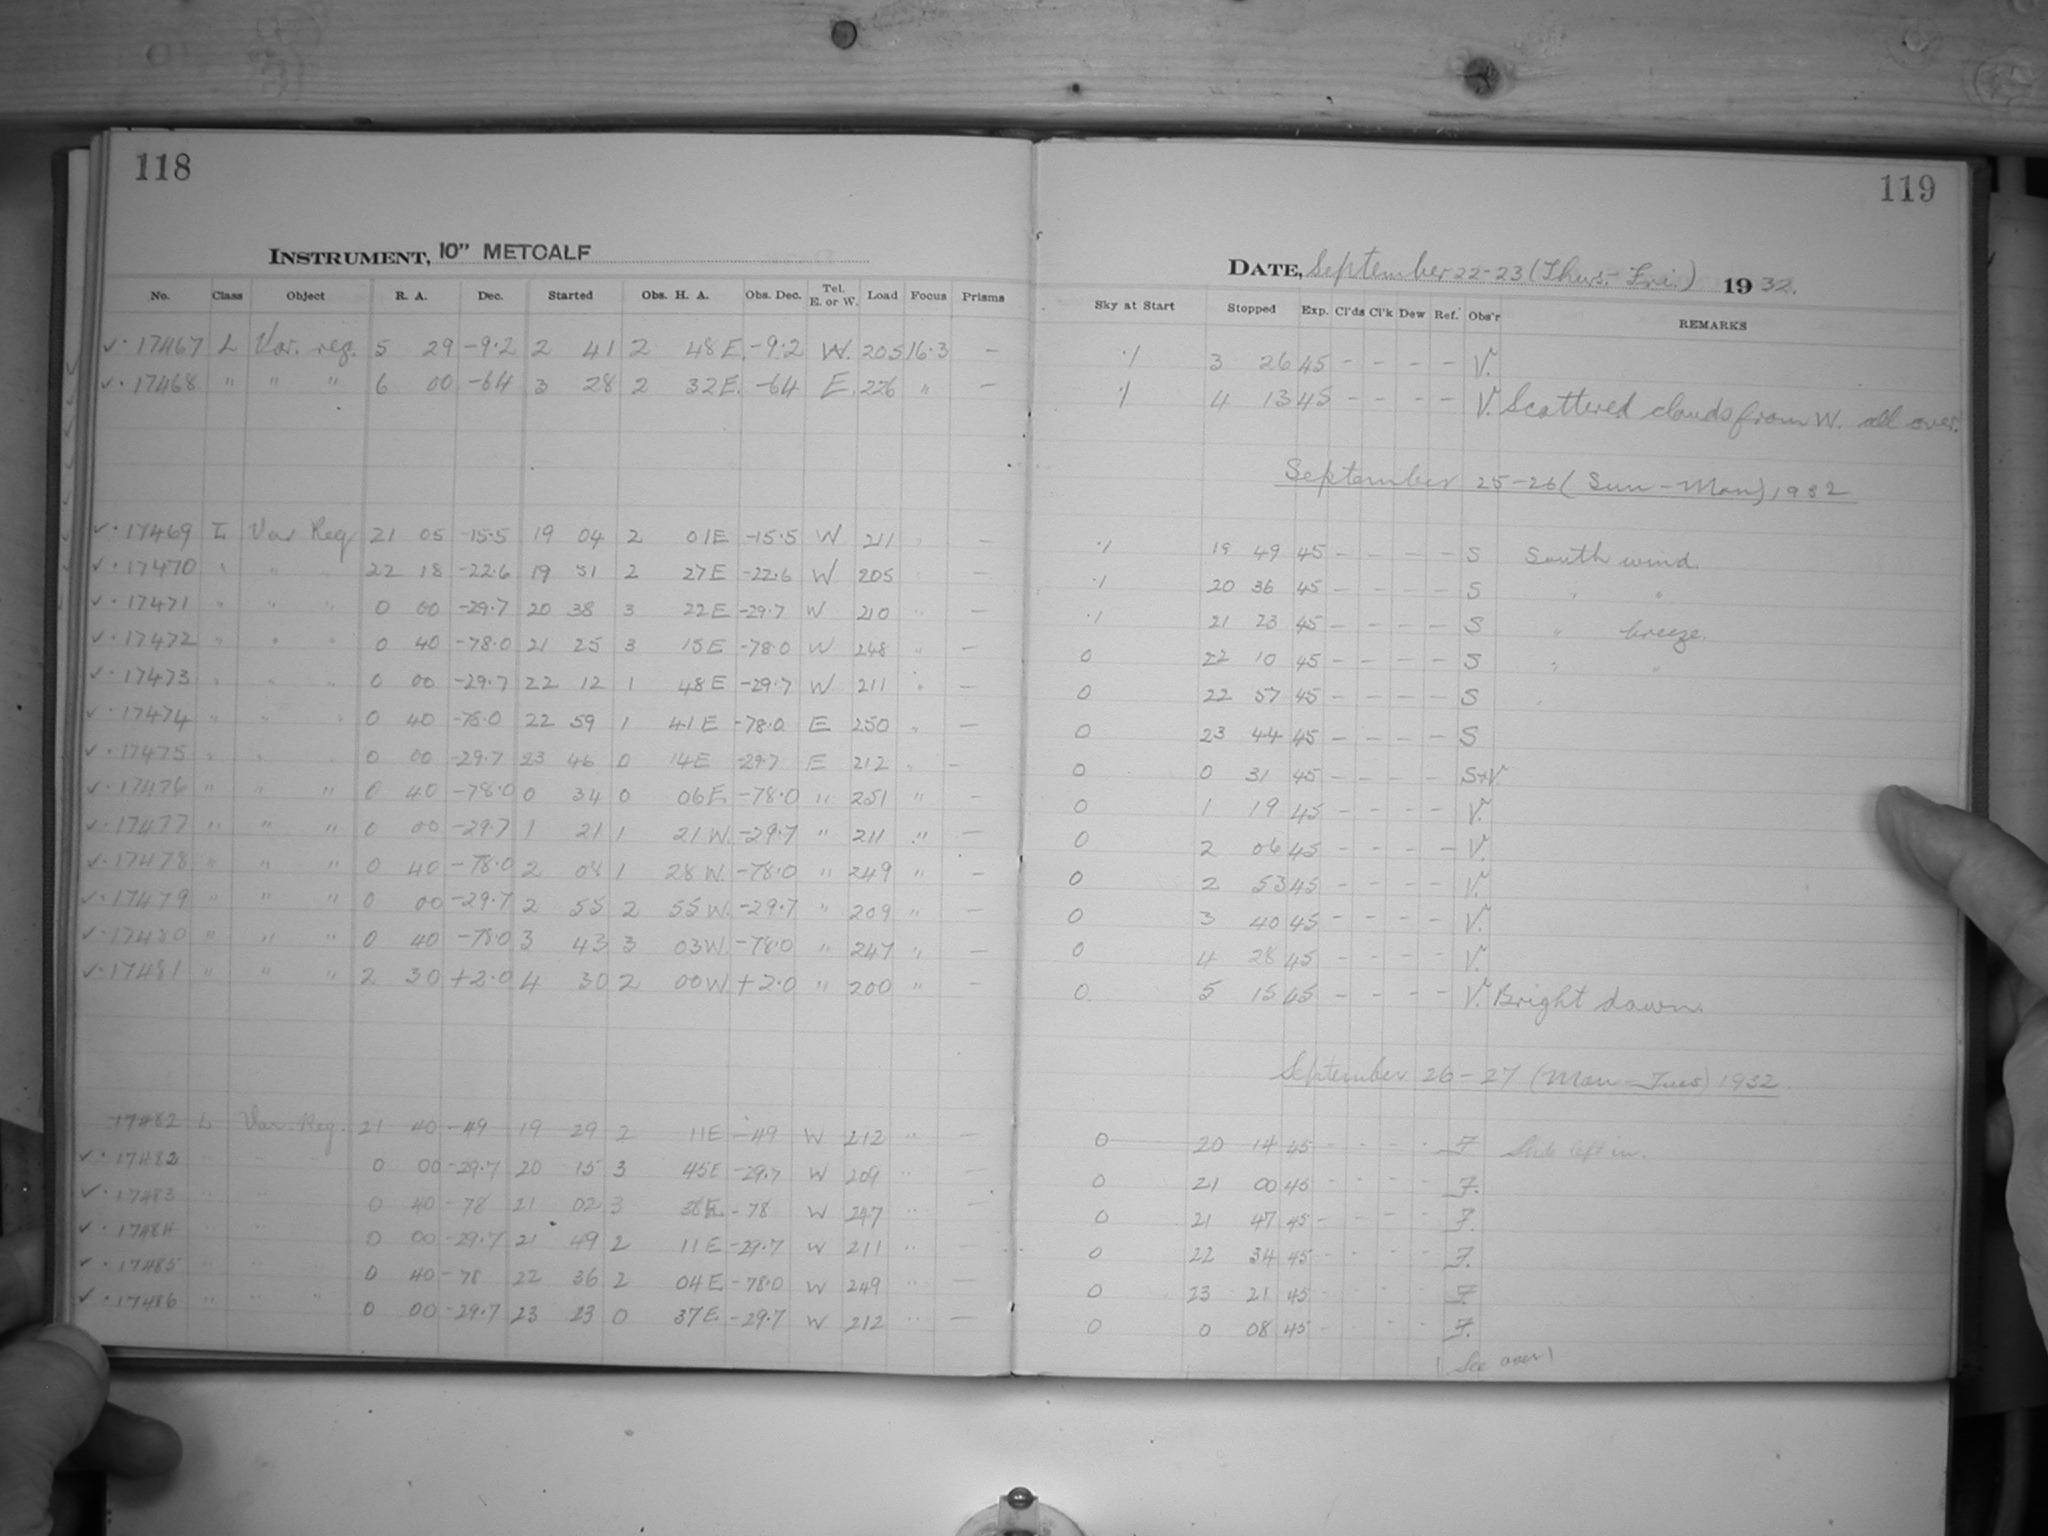 118
INSTRUMENT, 10" METCALF
No. Class Object R. A. Dec. Started Obs. H. A. Obs. Dec. Tel. E. or W. Load Focus Prisms
✓· 17467 L Var. reg. 5 29 -9.2 2 41 2 48 E. -9.2 W. 205 16.3 —
✓· 17468 " " " 6 00 -64 3 28 2 32 E. -64 E. 226 " —
✓· 17469 L Var Reg 21 05 -15.5 19 04 2 01 E -15.5 W 211 " —
✓· 17470 " " " 22 18 -22.6 19 51 2 27 E -22.6 W 205 " —
✓· 17471 " " " 0 00 -29.7 20 38 3 22 E -29.7 W 210 " —
✓· 17472 " " " 0 40 -78.0 21 25 3 15 E -78.0 W 248 " —
✓· 17473 " " " 0 00 -29.7 22 12 1 48 E -29.7 W 211 " —
✓· 17474 " " " 0 40 -78.0 22 59 1 41 E -78.0 E 250 " —
✓· 17475 " " " 0 00 -29.7 23 46 0 14 E -29.7 E 212 " —
✓· 17476 " " " 0 40 -78.0 0 34 0 06 E. -78.0 " 251 " —
✓· 17477 " " " 0 00 -29.7 1 21 1 21 W. -29.7 " 211 " —
✓· 17478 " " " 0 40 -78.0 2 08 1 28 W. -78.0 " 249 " —
✓· 17479 " " " 0 00 -29.7 2 55 2 55 W. -29.7 " 209 " —
✓· 17480 " " " 0 40 -78.0 3 43 3 03 W. -78.0 " 247 " —
✓· 17481 " " " 2 30 +2.0 4 30 2 00 W +2.0 " 200 " —
17482 L Var. Reg. 21 40 -49 19 29 2 11 E -49 W 212 " —
✓· 17482 " " 0 00 -29.7 20 15 3 45 E -29.7 W 209 " —
✓· 17483 " " 0 40 -78 21 02 3 38 E. -78 W 247 " —
✓· 17484 " " 0 00 -29.7 21 49 2 11 E -29.7 W 211 " —
✓· 17485 " " 0 40 -78 22 36 2 04 E -78.0 W 249 " —
✓· 17486 " " " 0 00 -29.7 23 23 0 37 E -29.7 W 212 " —
119
DATE, September 22-23 (Thurs.-Fri.) 1932.
Sky at Start Stopped Exp. Cl'ds Cl'k Dew Ref. Obs'r REMARKS
·1 3 26 45 - - - - V.
·1 4 13 45 - - - - V. Scattered clouds from W. all over.
September 25-26 (Sun-Mon) 1932
·1 19 49 45 - - - - S South wind.
·1 20 36 45 - - - - S " "
·1 21 23 45 - - - - S " breeze.
0 22 10 45 - - - - S " "
0 22 57 45 - - - - S "
0 23 44 45 - - - - S
0 0 31 45 - - - - S+V.
0 1 19 45 - - - - V.
0 2 06 45 - - - - V.
0 2 53 45 - - - - V.
0 3 40 45 - - - - V.
0 4 28 45 - - - - V.
0 5 15 45 - - - - V. Bright dawn.
September 26-27 (Mon-Tues) 1932.
0 20 14 45 - - - · F Slide left in.
0 21 00 45 - - - · F.
0 21 47 45 - - - · F.
0 22 34 45 - - - · F.
0 23 21 45 - - - · F.
0 0 08 45 - - - · F.
(See over)